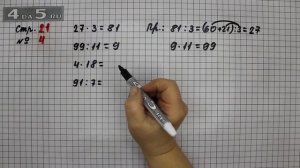 4a5.ru
Стр. 21 27 · 3 = 81 Пр.: 81 : 3 = (60 + 21) : 3 = 27
№ 4 99 : 11 = 9 9 · 11 = 99
4 · 18 =
91 : 7 =